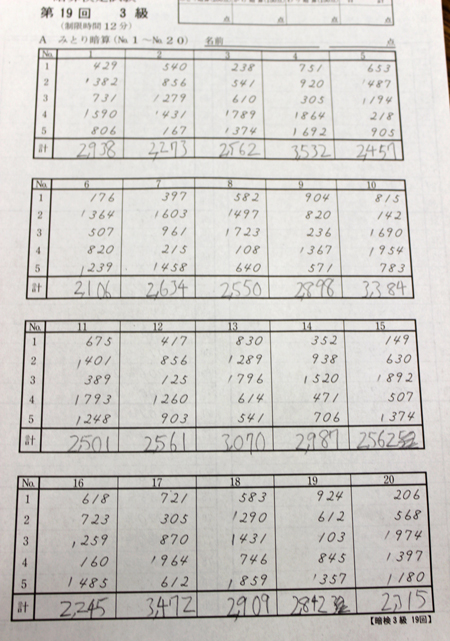 第19回 3級
点 点 点
(制限時間12分)
A みとり暗算 (No.1~No.20) 名前 点
No. 1 2 3 4 5
1 429 540 238 751 653
2 '382 856 541 920 '487
3 731 '279 610 305 '194
4 '590 '431 '789 '864 218
5 806 167 '374 '692 905
計 2,938 2,273 2,562 3,532 2,457
No. 6 7 8 9 10
1 176 397 582 904 815
2 '364 '603 '497 820 142
3 507 961 '723 236 '690
4 820 215 108 '367 '954
5 '239 '458 640 571 783
計 2,106 2,634 2,550 2,898 3,384
No. 11 12 13 14 15
1 675 417 830 352 149
2 '401 856 '289 938 630
3 389 125 '796 '520 '892
4 '793 '260 614 471 507
5 '248 903 541 706 '374
計 2,501 2,561 3,070 2,987 2,562
No. 16 17 18 19 20
1 618 721 583 924 206
2 723 305 '290 612 568
3 '259 870 '431 103 '974
4 160 '964 746 845 '397
5 '485 612 '859 '357 '180
計 2,245 3,472 2,909 2,842 2,315
【暗検3級 19回】